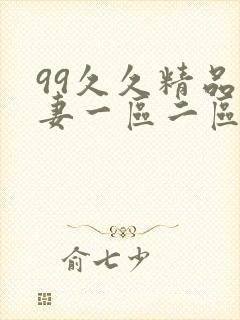 99久久精品
妻一區二區
俞七少